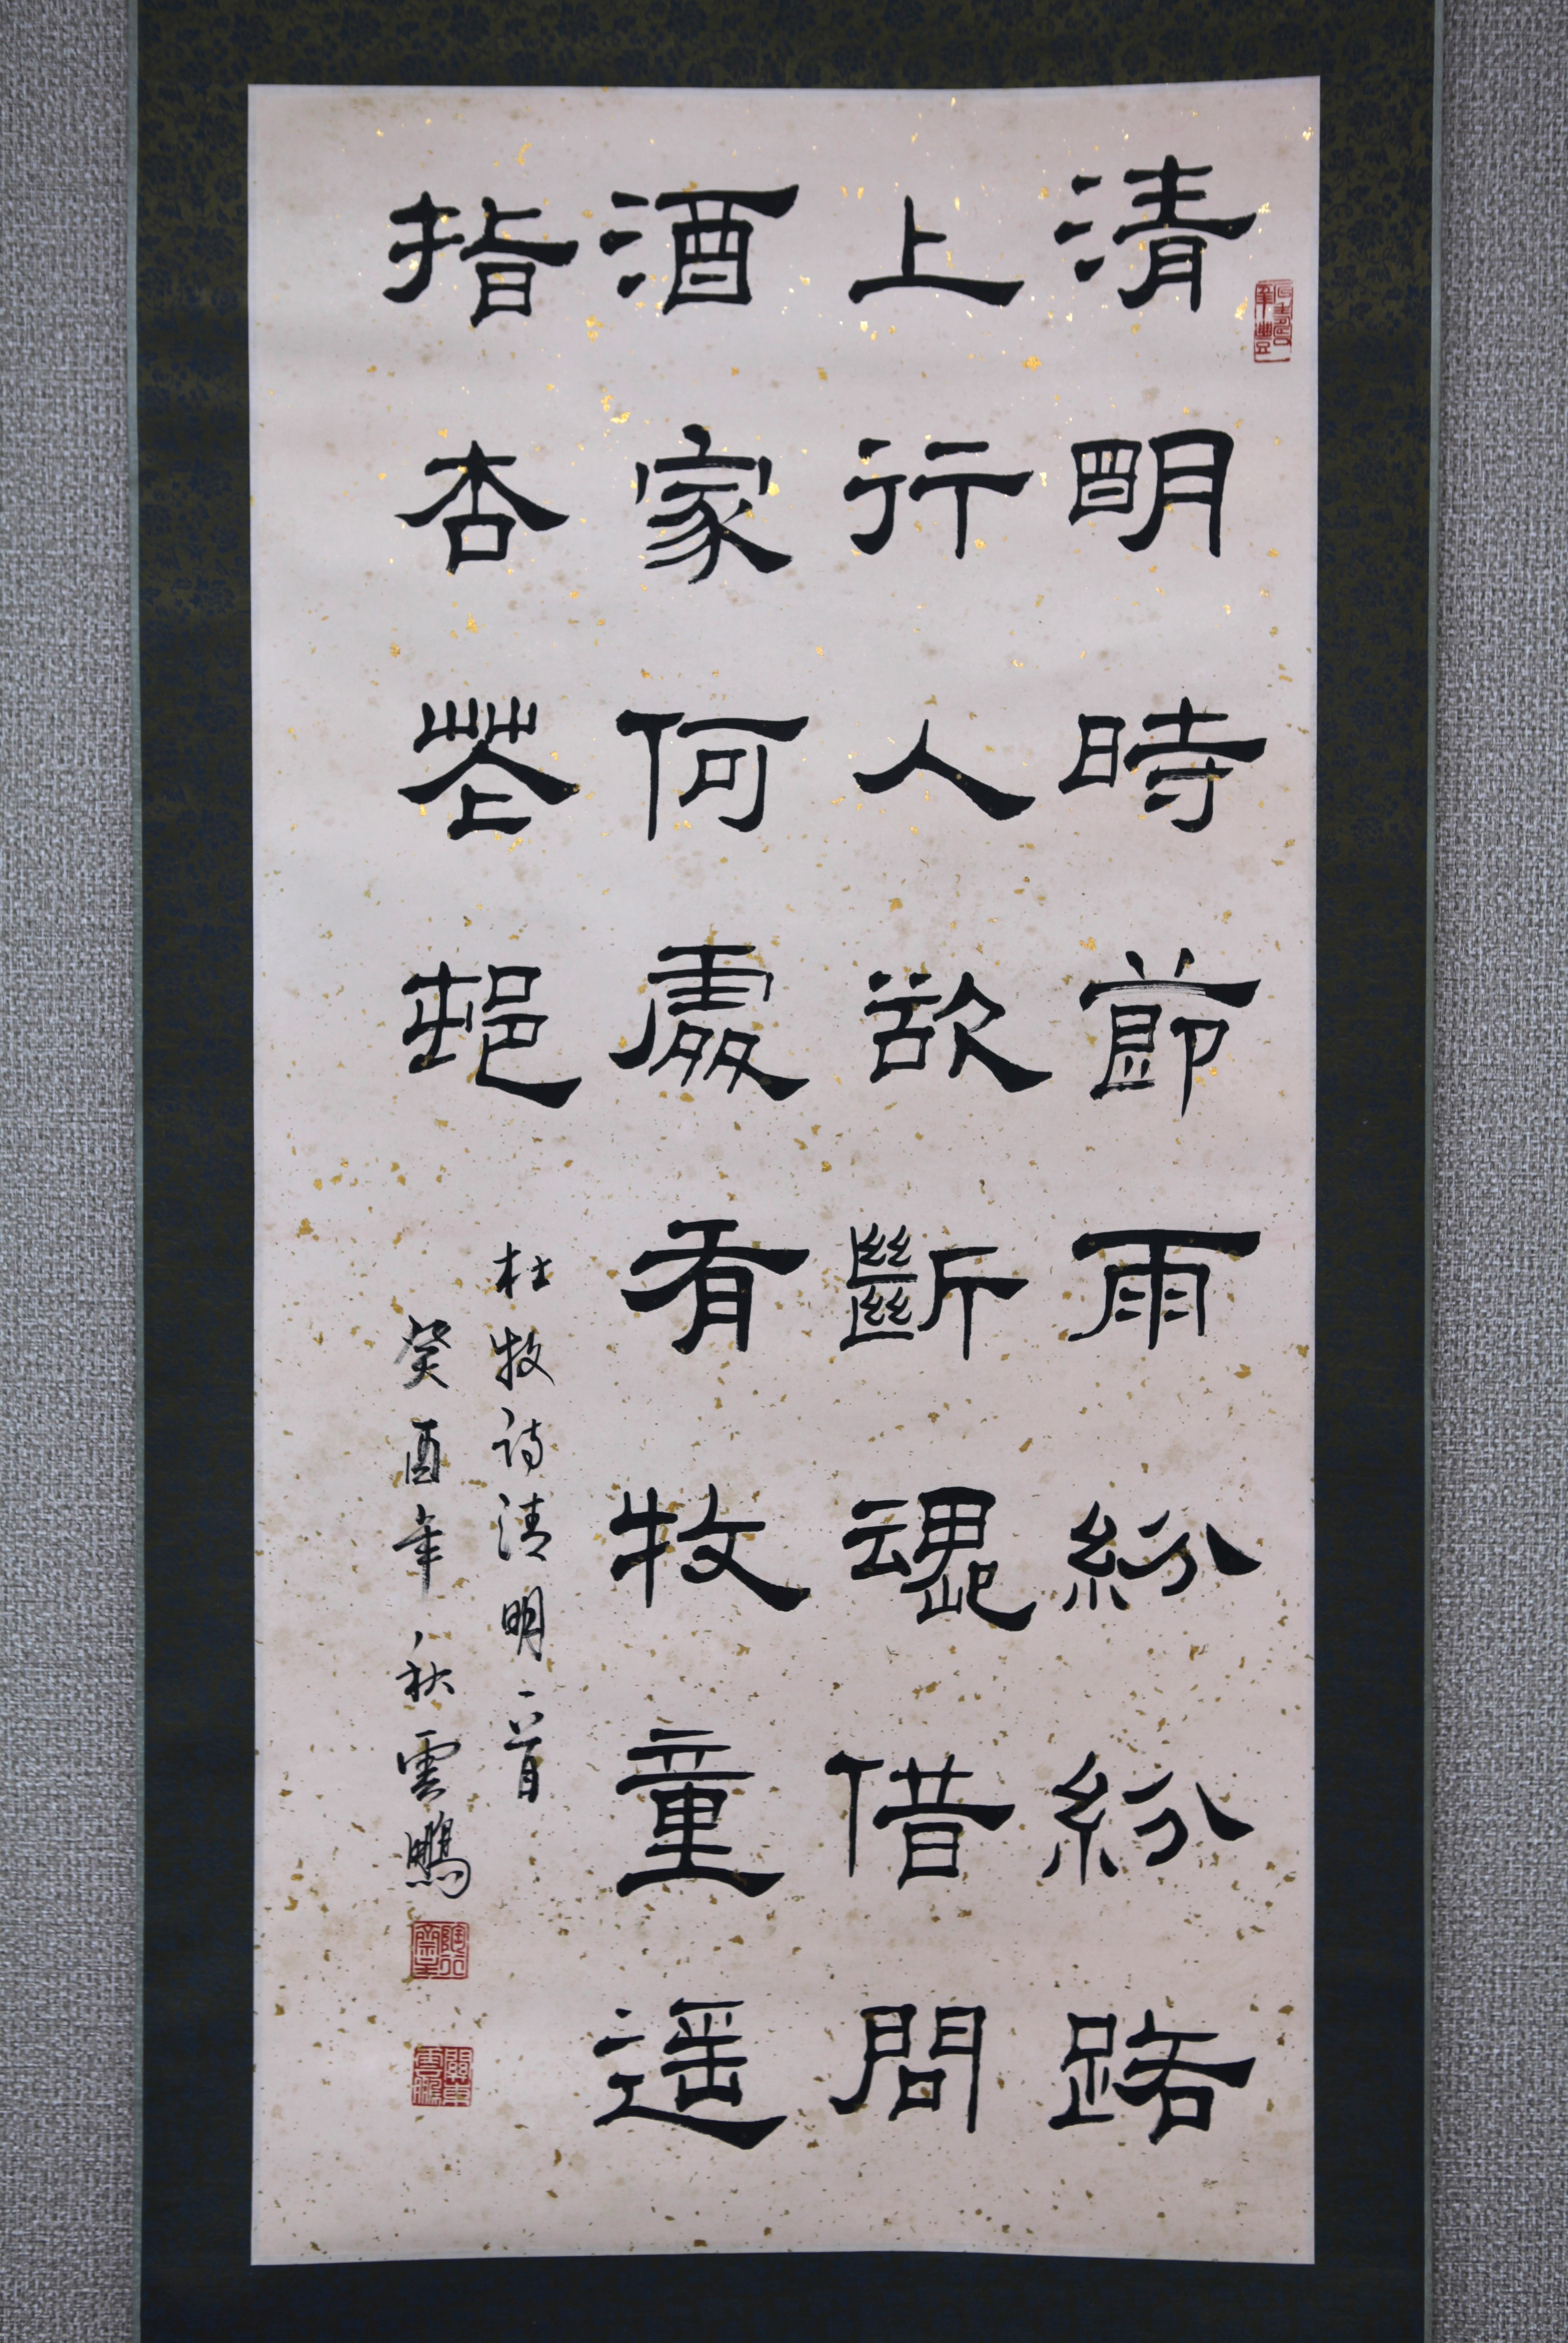 清明時節雨紛紛路
上行人欲斷魂借問
酒家何處有牧童遥
指杏花邨
杜牧诗清明一首
癸酉年秋雲鵬